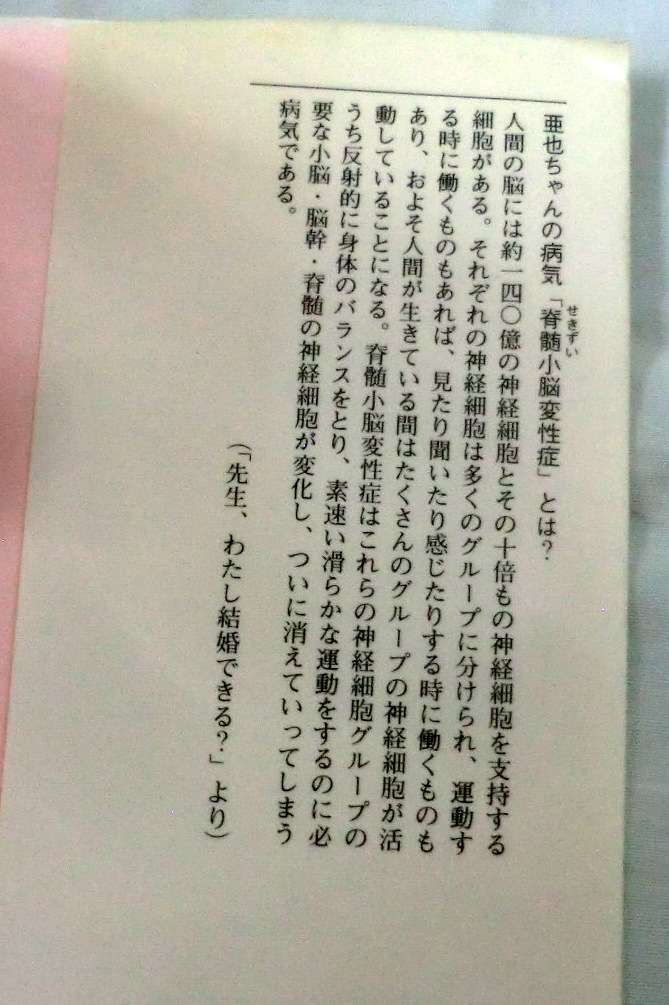 亜也ちゃんの病気「脊髄小脳変性症」とは？
せきずい
人間の脳には約一四〇億の神経細胞とその十倍もの神経細胞を支持する
細胞がある。それぞれの神経細胞は多くのグループに分けられ、運動す
る時に働くものもあれば、見たり聞いたり感じたりする時に働くものも
あり、およそ人間が生きている間はたくさんのグループの神経細胞が活
動していることになる。脊髄小脳変性症はこれらの神経細胞グループの
うち反射的に身体のバランスをとり、素速い滑らかな運動をするのに必
要な小脳・脳幹・脊髄の神経細胞が変化し、ついに消えていってしまう
病気である。
（「先生、わたし結婚できる？」より）